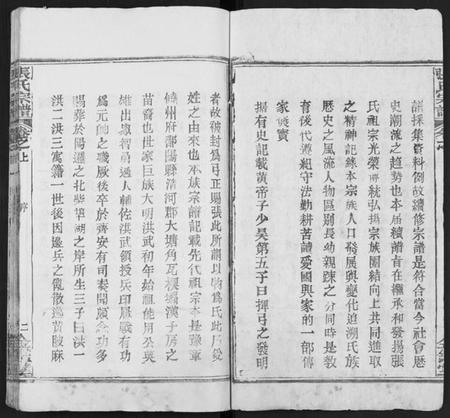 譜採集資料例故續修宗譜是符合當今社會歷
史潮流之趨勢也本屆續譜旨在繼承和發揚張
氏祖宗光榮傳統弘揚宗族團結向上共同進取
之精神記錄本宗族人口發展與變化追溯氏族
歷史之風流人物區別長幼親疎之分同時是教
育後代遵紀守法勤耕苦讀愛國與家的一部傳
家寶賣
據有史記載黃帝子少昊第五子曰揮弓之發明
者故被封為弓正賜張此所謂以物為氏此乃受
姓之由來也本族宗譜記載先代祖宗本是豫章
饒州府鄱陽縣清河郡大塘角瓦壩漢子房之
苗裔也世家巨族大明洪武初年始祖他用公英
雄出眾智勇過人輔佐洪武領授兵印屢戰有功
為元帥之職厥後卒於齊安有司奏聞厥念功多
賜葬於陽邏之北柴華湖之岸所生三子曰洪一
洪二洪三寓籍一世後因邊兵之亂散遷黃陂麻
張氏宗譜
卷之上
序
二
張氏宗譜